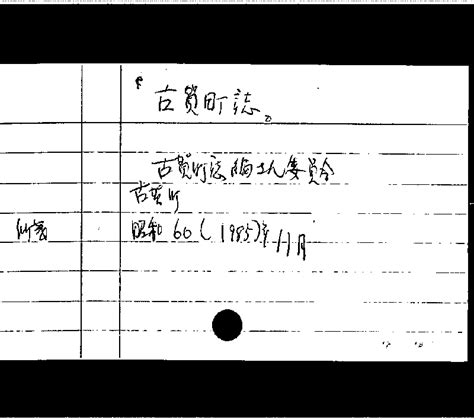 古賀町誌。
古賀町誌編さん委員会
古賀町
所蔵 昭和60(1985)年11月